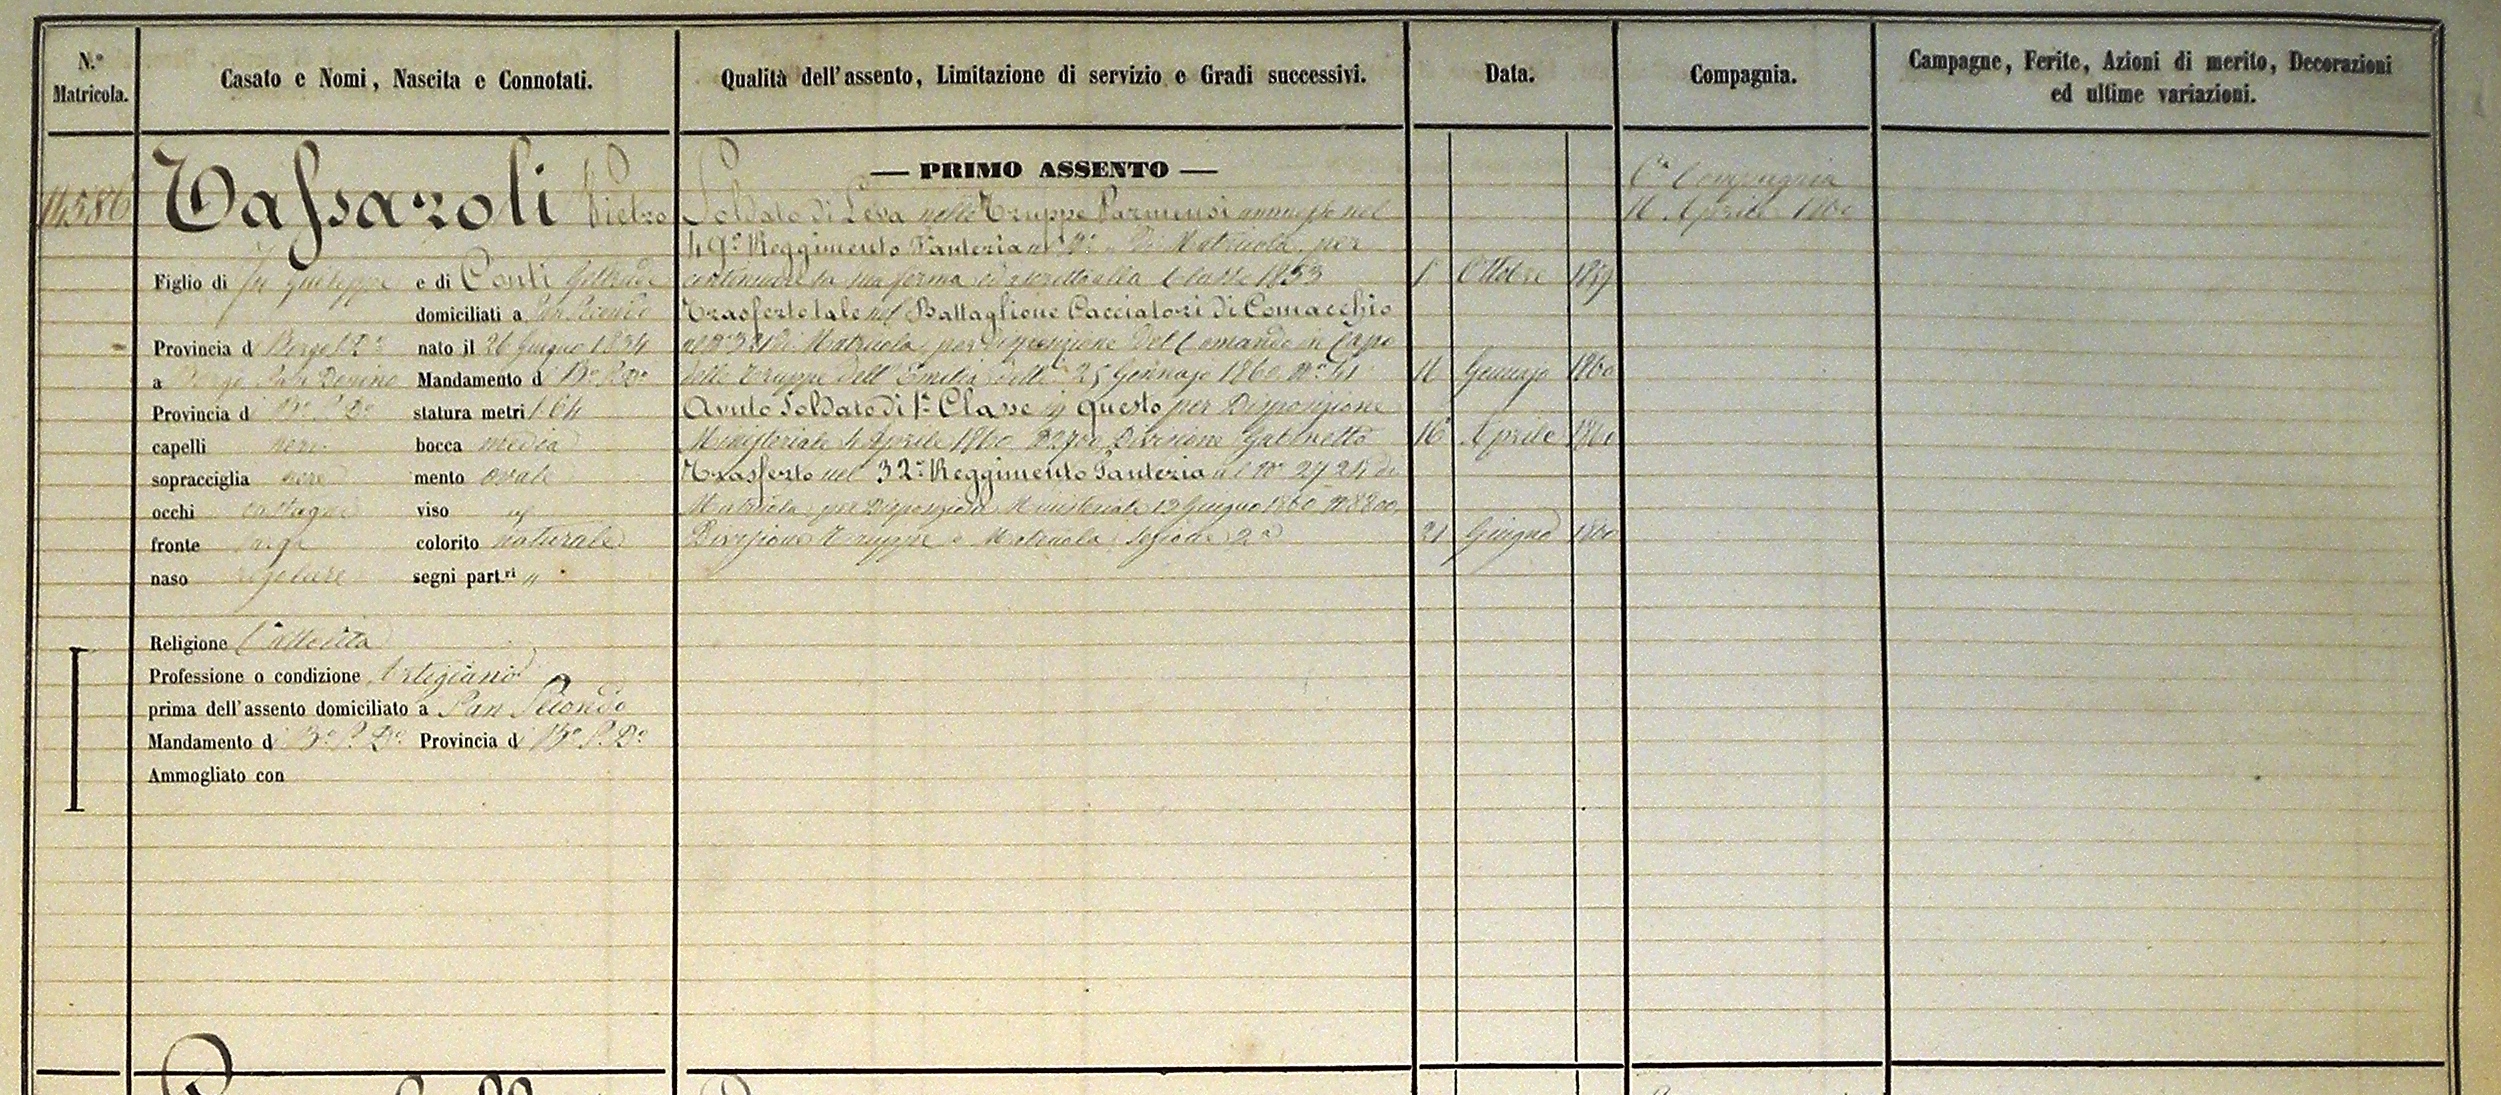 N.° Matricola.
Casato e Nomi, Nascita e Connotati.
Qualità dell'assento, Limitazione di servizio e Gradi successivi.
Data.
Compagnia.
Campagne, Ferite, Azioni di merito, Decorazioni
ed ultime variazioni.
14586
Tassaroli Pietro
Figlio di fu Giuseppe e di Conti Geltrude
domiciliati a San Secondo
Provincia di Borgo S. D.° nato il 26 Giugno 1834
a Borgo San Donino Mandamento di B.° S. D.°
Provincia di B.° S. D.° statura metri 1.64
capelli neri bocca media
sopracciglia nere mento ovale
occhi castagni viso
fronte larga colorito naturale
naso regolare segni part.ri "
Religione Cattolica
Professione o condizione Artigiano
prima dell'assento domiciliato a San Secondo
Mandamento di B.° S. D.° Provincia di B.° S. D.°
Ammogliato con
— PRIMO ASSENTO —
Soldato di Leva nelle Truppe Parmensi ammesso nel
49° Reggimento Fanteria al N.° " di Matricola, per
continuare la sua ferma ed ascritto alla Classe 1833 1° Ottobre 1859
Trasferto tale nel Battaglione Cacciatori di Comacchio
al N.° 321 di Matricola per disposizione del Comando in Capo
delle Truppe dell'Emilia delli 25 Gennajo 1860 N.° 41 16 Gennajo 1860
Avuto Soldato di 1ª Classe in questo per Disposizione
Ministeriale 4 Aprile 1860 N.2700 Divisione Gabinetto 16 Aprile 1860
Trasferto nel 32° Reggimento Fanteria al N.° 27424 di
Matricola per Disposizione Ministeriale 13 Giugno 1860 N.8800,
Divisione Truppe e Matricola Sezione 2ª 21 Giugno 1860
6ª Compagnia
16 Aprile 1860